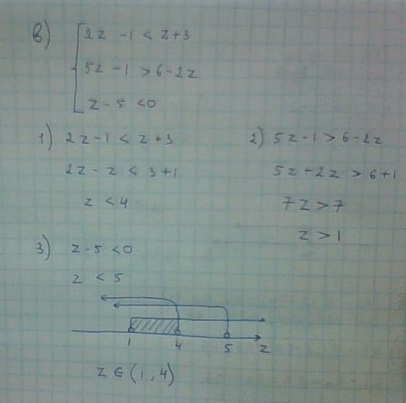 в) 2z - 1 < z + 3
5z - 1 > 6 - 2z
z - 5 < 0
1) 2z - 1 < z + 3
2z - z < 3 + 1
z < 4
2) 5z - 1 > 6 - 2z
5z + 2z > 6 + 1
7z > 7
z > 1
3) z - 5 < 0
z < 5
1 4 5 z
z ∈ (1, 4)